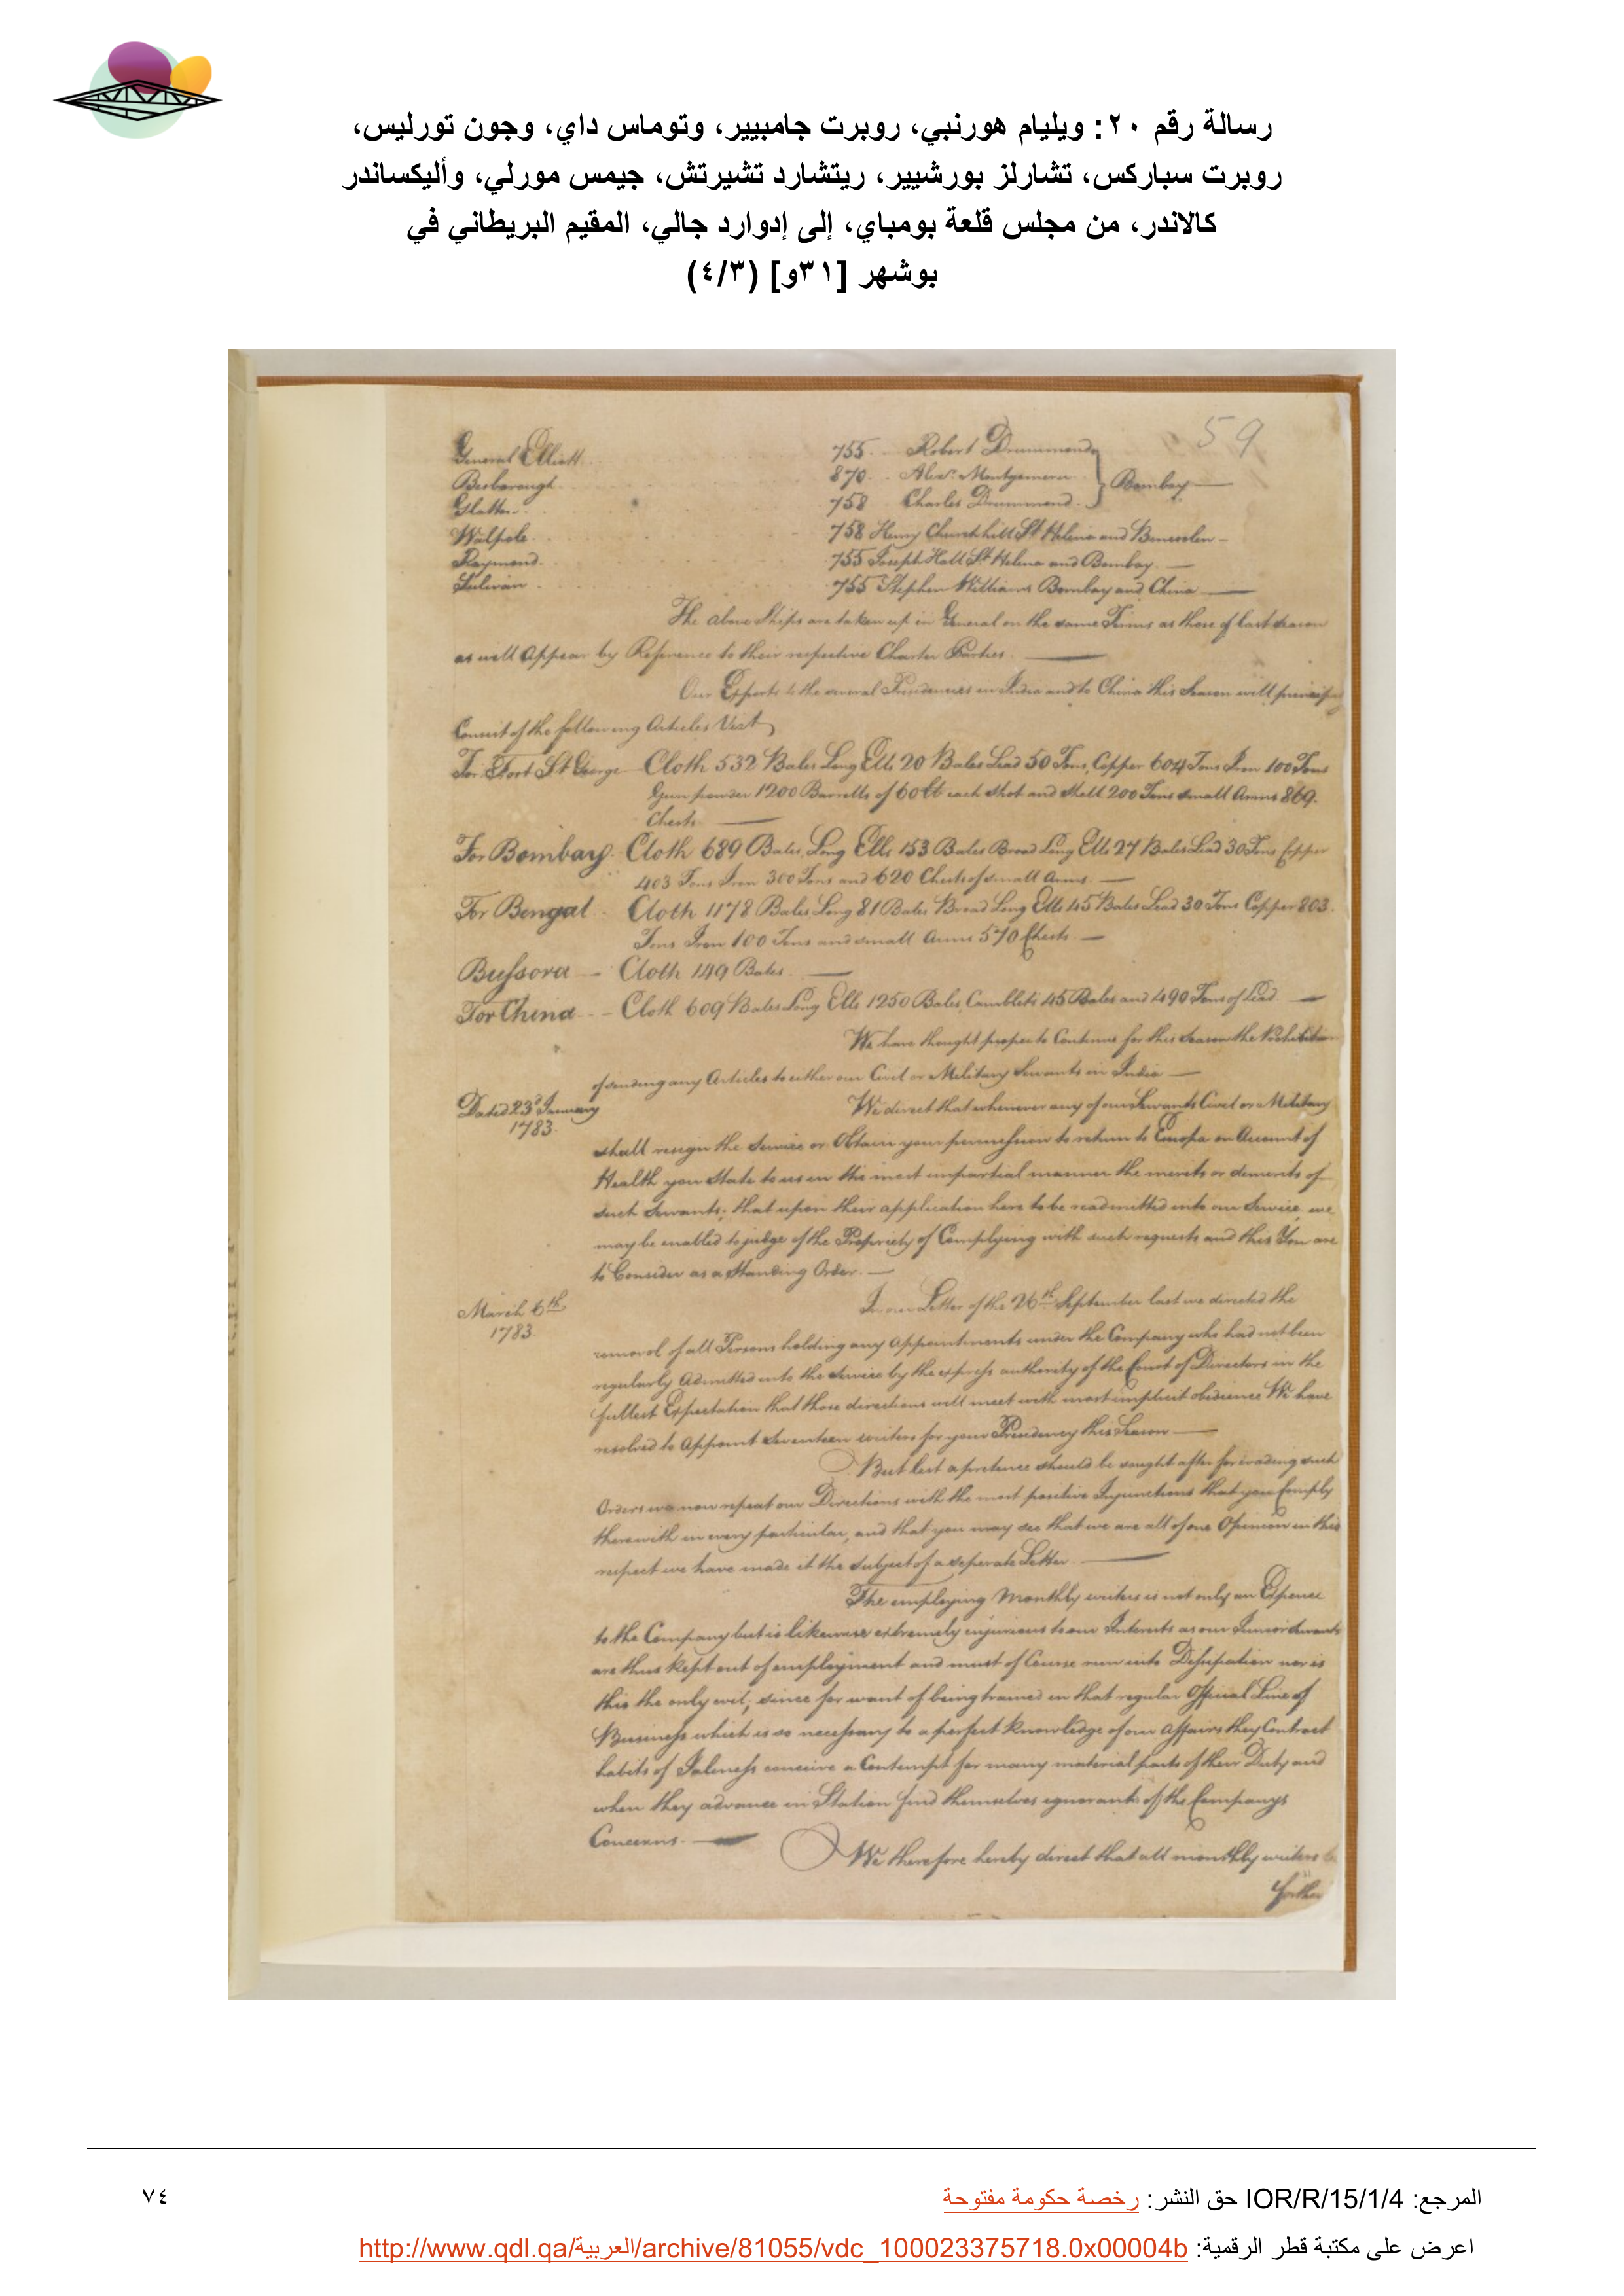 رسالة رقم ٢٠: ويليام هورنبي، روبرت جامبيير، وتوماس داي، وجون تورليس،
روبرت سباركس، تشارلز بورشيير، ريتشارد تشيرتش، جيمس مورلي، وأليكساندر
كالاندر، من مجلس قلعة بومباي، إلى إدوارد جالي، المقيم البريطاني في
بوشهر [٣١و] (٤/٣)
59
General Elliott 755 Robert Drummond
Besborough 870 Alexr. Montgomerie } Bombay
Glatton 758 Charles Drummond
Walpole 758 Henry Churchhill St Helena and Bencoolen
Raymond 755 Joseph Hall St Helena and Bombay
Sulivan 755 Stephen Williams Bombay and China
The above Ships are taken up in General on the same Terms as those of last Season
as will Appear by Reference to their respective Charter Parties
Our Exports to the several Presidencies in India and to China this Season will principally
Consist of the following Articles Vizt
For Fort St George Cloth 532 Bales Long Ells 20 Bales Lead 50 Tons, Copper 604 Tons Iron 100 Tons
Gun powder 1200 Barrells of 60 lb each Shot and Shell 200 Tons small Arms 869
Chests
For Bombay Cloth 689 Bales, Long Ells 153 Bales Broad Long Ells 27 Bales Lead 30 Tons Copper
403 Tons Iron 300 Tons and 620 Chests of small Arms
For Bengal Cloth 1178 Bales Long 81 Bales Broad Long Ells 45 Bales Lead 30 Tons Copper 803
Tons Iron 100 Tons and small Arms 570 Chests
Bussora Cloth 149 Bales
For China Cloth 609 Bales Long Ells 1250 Bales, Camblets 45 Bales and 490 Tons of Lead
We have thought proper to Continue for this Season the Prohibition
of sending any Articles to either our Civil or Military Servants in India
Dated 23d January We direct that whenever any of our Servants Civil or Military
1783
shall resign the Service or Obtain your permission to return to Europe on Account of
Health you State to us in the most impartial manner the merits or demerits of
such Servants, that upon their application here to be readmitted into our Service we
may be enabled to judge of the Propriety of Complying with such requests and this You are
to Consider as a Standing Order.
March 6th In our Letter of the 26th September last we directed the
1783
removal of all Persons holding any Appointments under the Company who had not been
regularly Admitted into the Service by the express authority of the Court of Directors in the
fullest Expectation that those directions will meet with most implicit obedience We have
resolved to Appoint Seventeen writers for your Presidency this Season
But lest a pretence should be sought after for evading such
Orders we now repeat our Directions with the most positive Injunctions that you Comply
therewith in every particular, and that you may see that we are all of one Opinion in this
respect we have made it the subject of a seperate Letter
The employing Monthly writers is not only an Expence
to the Company but is likewise extremely injurious to our Interests as our Junior Servants
are thus kept out of employment and must of Course run into Dissipation nor is
this the only evil, since for want of being trained in that regular Official Line of
Business which is so necessary to a perfect knowledge of our Affairs they Contract
habits of Idleness conceive a Contempt for many material parts of their Duty and
when they advance in Station find themselves ignorant of the Companys
Concerns.
We therefore hereby direct that all monthly writers be
المرجع: IOR/R/15/1/4 حق النشر: رخصة حكومة مفتوحة
٧٤
اعرض على مكتبة قطر الرقمية: http://www.qdl.qa/العربية/archive/81055/vdc_100023375718.0x00004b